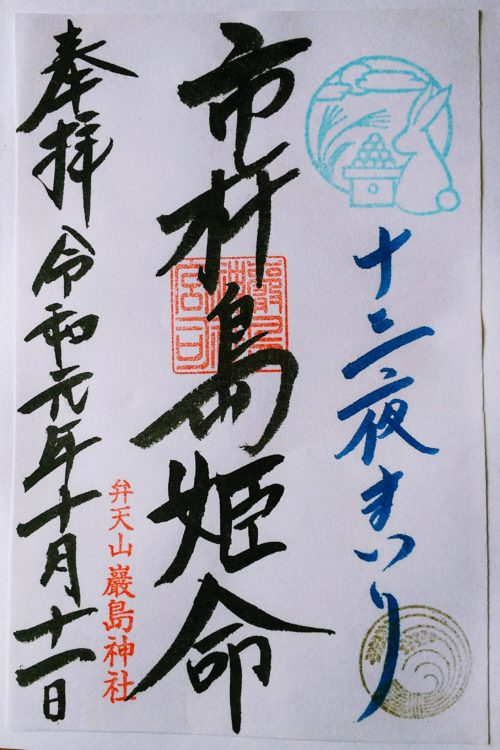 十三夜まいり
市杵島姫命
奉拝 令和元年十月十一日
弁天山 巖島神社